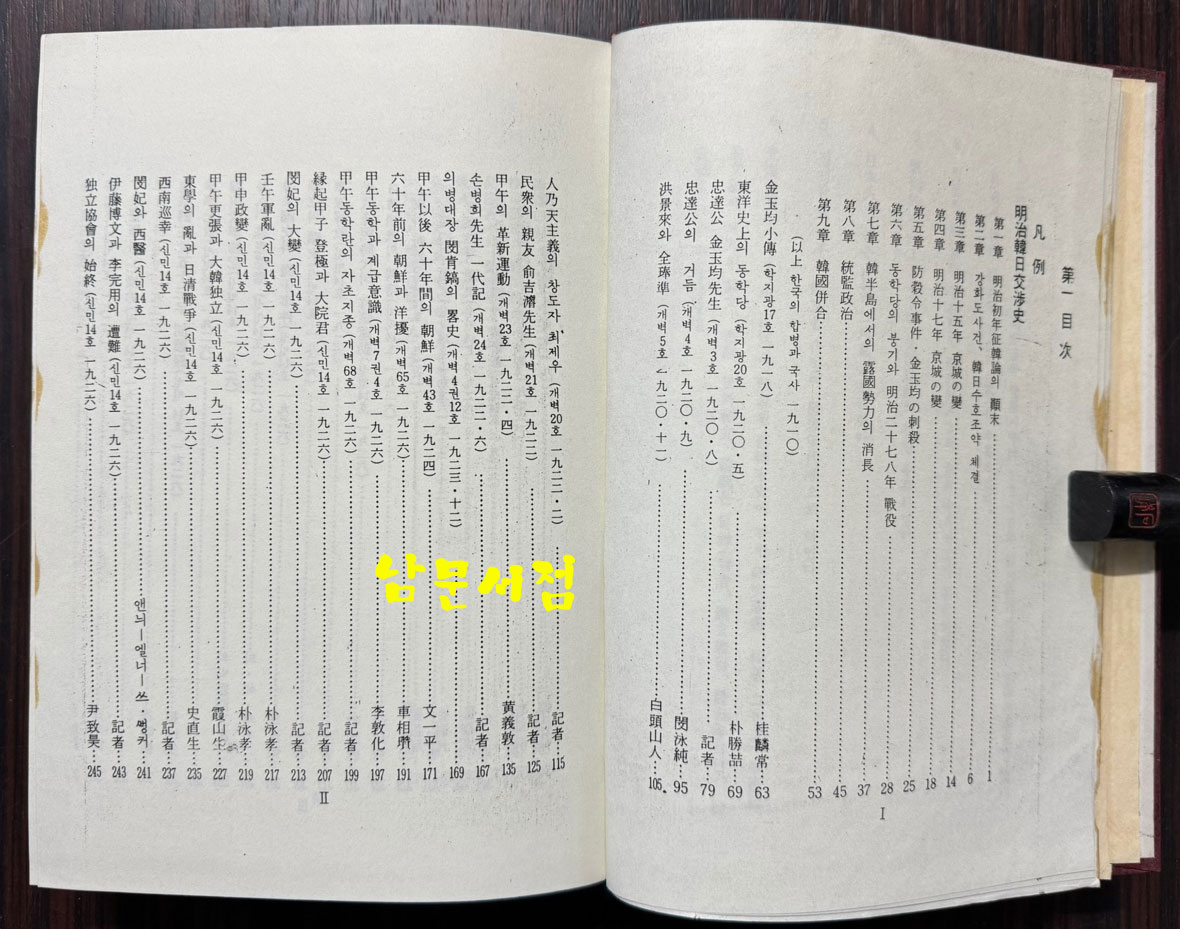 第一目次
凡例
明治韓日交涉史
第一章 明治初年征韓論의 顚末 1
第二章 강화도사건、韓日수호조약 체결 6
第三章 明治十五年 京城の變 14
第四章 明治十七年 京城の變 18
第五章 防穀令事件・金玉均の刺殺 25
第六章 동학당의 봉기와 明治二十七八年 戰役 28
第七章 韓半島에서의 露國勢力의 消長 37
第八章 統監政治 45
第九章 韓國倂合 53
(以上 한국의 합병과 국사 一九一〇)
金玉均小傳 (학지광17호 一九一八) 桂麟常 63
東洋史上의 동학당 (학지광20호 一九二〇・五) 朴勝喆 69
忠達公 金玉均先生 (개벽3호 一九二〇・八) 記者 79
忠達公의 거듬 (개벽4호 一九二〇・九) 閔泳純 95
洪景來와 全琫準 (개벽5호 一九二〇・十一) 白頭山人 105
I
人乃天主義의 창도자 최제우 (개벽20호 一九二二・二) 記者 115
民衆의 親友 俞吉濬先生 (개벽21호 一九二二) 記者 125
甲午의 革新運動 (개벽23호 一九二二・四) 黄義敦 135
손병희先生 一代記 (개벽24호 一九二二・六) 記者 167
의병대장 閔肯鎬의 畧史 (개벽4권12호 一九二三・十二) 169
甲午以後 六十年간의 朝鮮 (개벽43호 一九二四) 文一平 171
六十年前의 朝鮮과 洋擾 (개벽65호 一九二六) 車相瓚 191
甲午동학과 계급意識 (개벽7권4호 一九二六) 李敦化 197
甲午동학란의 자초지종 (개벽68호 一九二六) 記者 199
緣起甲子 登極과 大院君 (신민14호 一九二六) 記者 207
閔妃의 大變 (신민14호 一九二六) 記者 213
壬午軍亂 (신민14호 一九二六) 朴泳孝 217
甲申政變 (신민14호 一九二六) 朴泳孝 219
甲午更張과 大韓独立 (신민14호 一九二六) 霞山生 227
東學의 亂과 日清戰爭 (신민14호 一九二六) 史直生 235
西南巡幸 (신민14호 一九二六) 記者 237
閔妃와 西醫 (신민14호 一九二六) 앤늬ー엘너ー쓰・쌩커 241
伊藤博文과 李完用의 遭難 (신민14호 一九二六) 記者 243
独立協會의 始終 (신민14호 一九二六) 尹致昊 245
II
남문서점